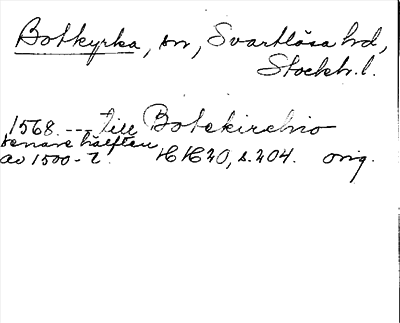 Botkyrka, sn, Svartlösa hd,
Stockh. l.
1568. --- till Botekirchio
senare hälften
av 1500-t. HH20, s.204. orig.